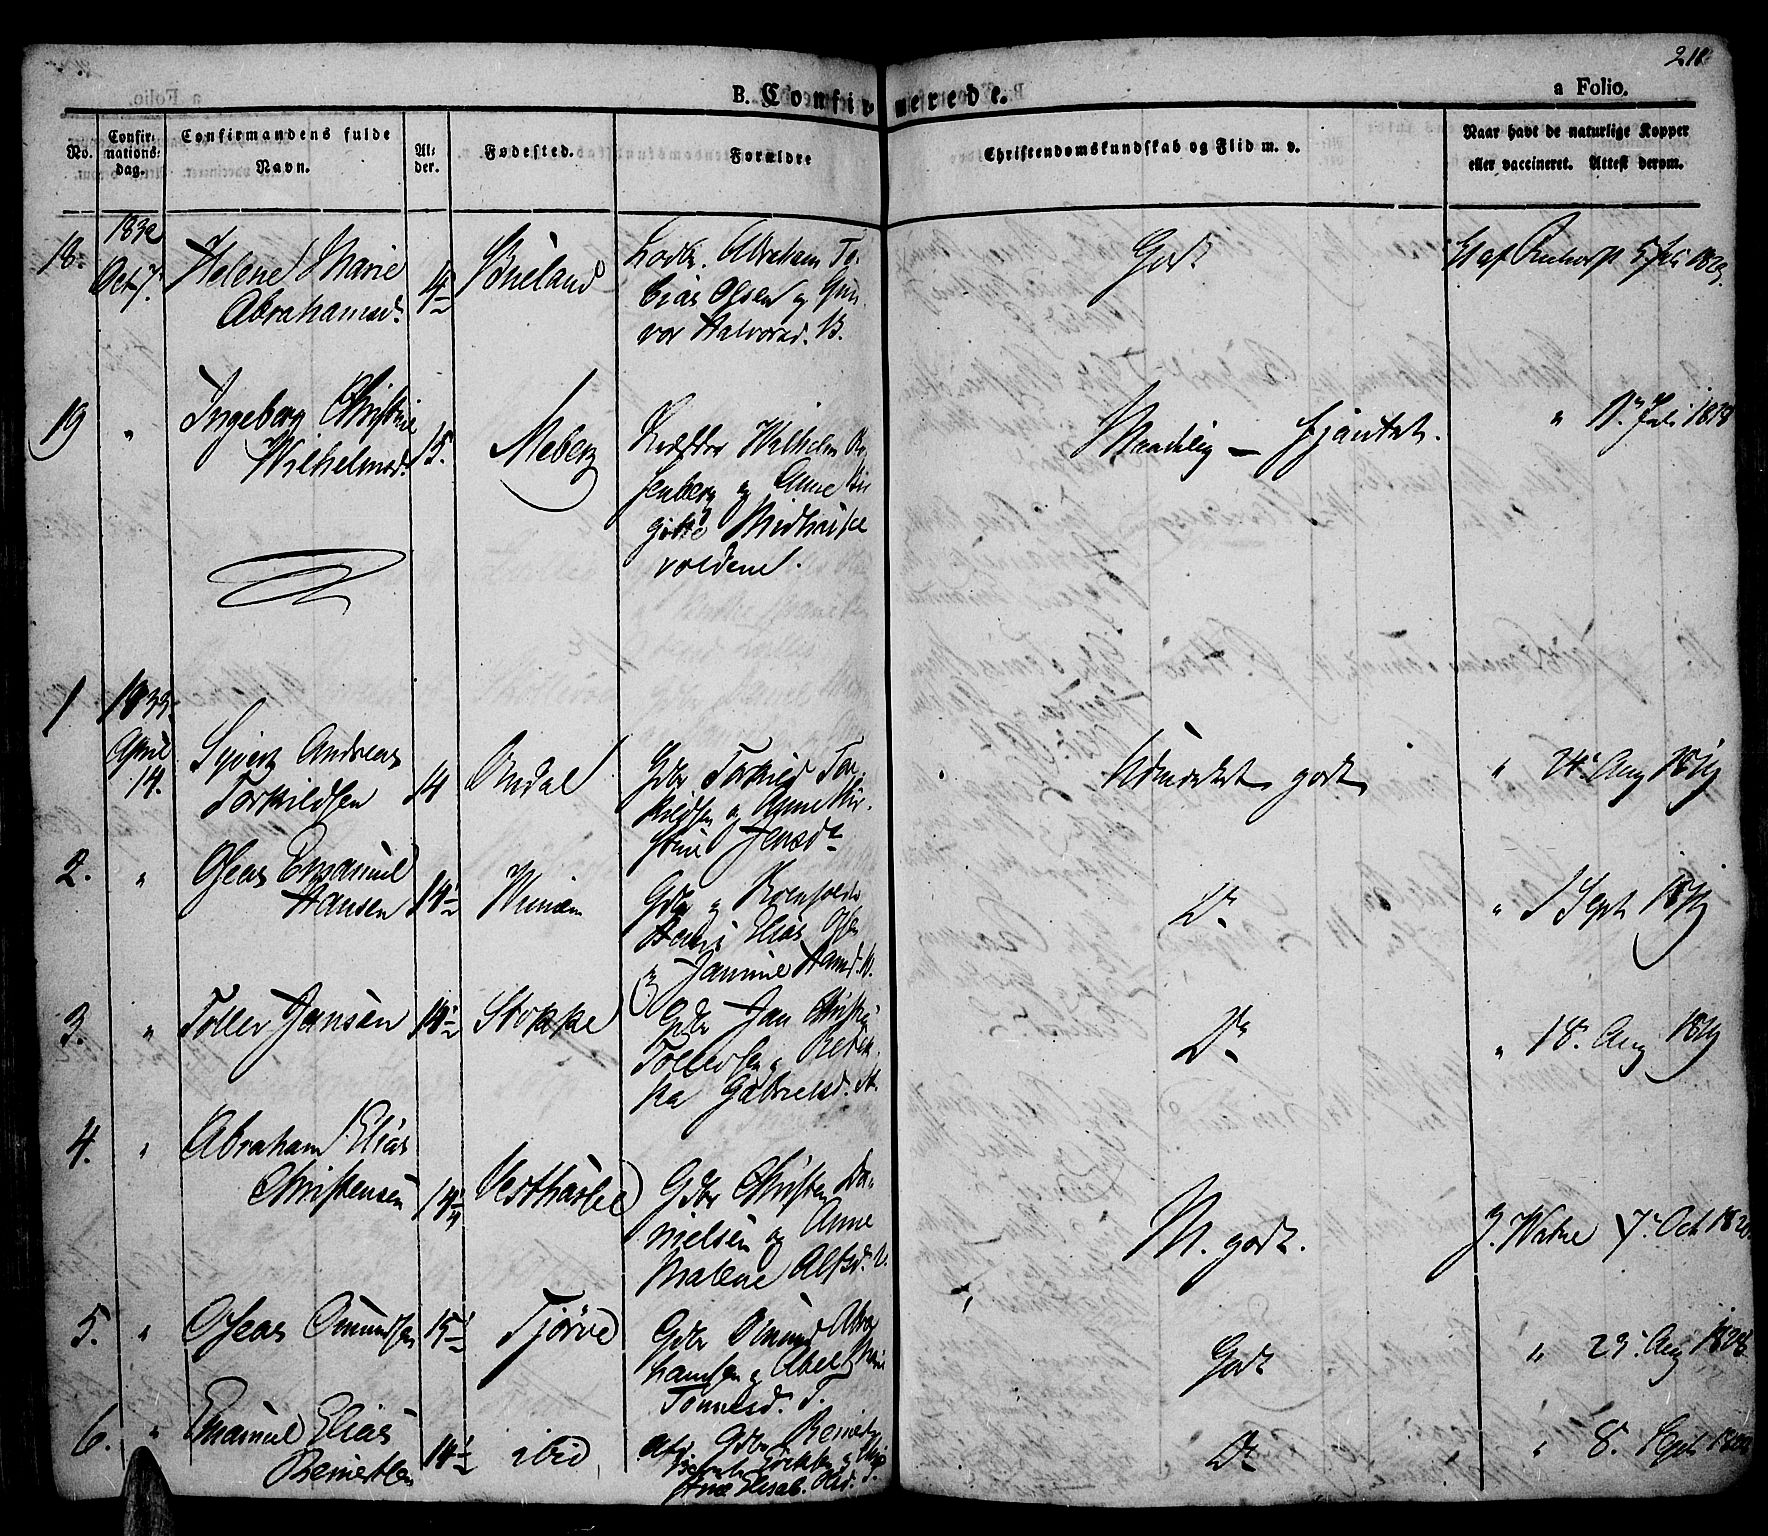 218
B. Confirmerede.
a Folio.
No.
Confirmationsdag.
Confirmandens fulde Navn.
Alder.
Fødested.
Forældre
Christendomskundskab og Flid m. v.
Naar havt de naturlige Kopper
eller vaccineret. Attest derom.
18.
1832
Oct 7.
Helene Marie
Abrahamsd.
14
Briseland
Abraham To-
bias Olsen og Gun-
vor Halvorsd. B.
Godt
5 Juli 1823.
19
"
Ingeborg Christine
Wilhelmsd.
15.
Meberg
Wilhelm Ro-
senberg og Anne Bir
gitte Midhaske
voldene.
Maadelig — fjantet.
" Juli 1818
1
1833
April
14.
Sivert Andreas
Torkildsen
14
Ondal
Gdbr Torkild Tor-
kildsen og Anne Kir-
stine Jensdr
Udmerket godt
" 24 Aug 1819
2.
"
Oseas Emanuel
Hansen
14½
Gdbr og
Hans Elias Ols
Janine Hansd.
Do
" 1 Sept 1819
3.
"
Tollev Jansen
14½
Stokke
Gdbr Jan Christ
Tollevsen og Rebek-
ka Gabrielsd. St.
Do
" 18. Aug 1819
4.
"
Abraham Elias
Christensen
14¼
Vesthassel
Gdbr Christen Da-
nielsen og Anne
Malene Alfsd. V.
M. godt.
J. Watne 7. Oct 1820.
5.
"
Oseas Omundsen
15½
Tjørve
Gdbr Omund Abra
hamsen og Abel Marie
Tønnesd. T.
Godt
" 23. Aug 1828
6.
"
Emanuel Elias
Reinertsen
14½
ibid
afd. Gdbr Reinert
Elisab. Olsd. T.
Do
" 8. Sept